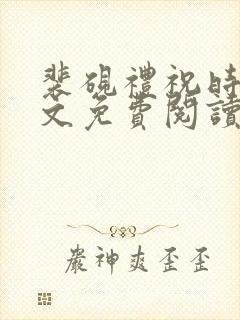 裴硯禮祝時
文免費閱讀
嚴神爽歪歪